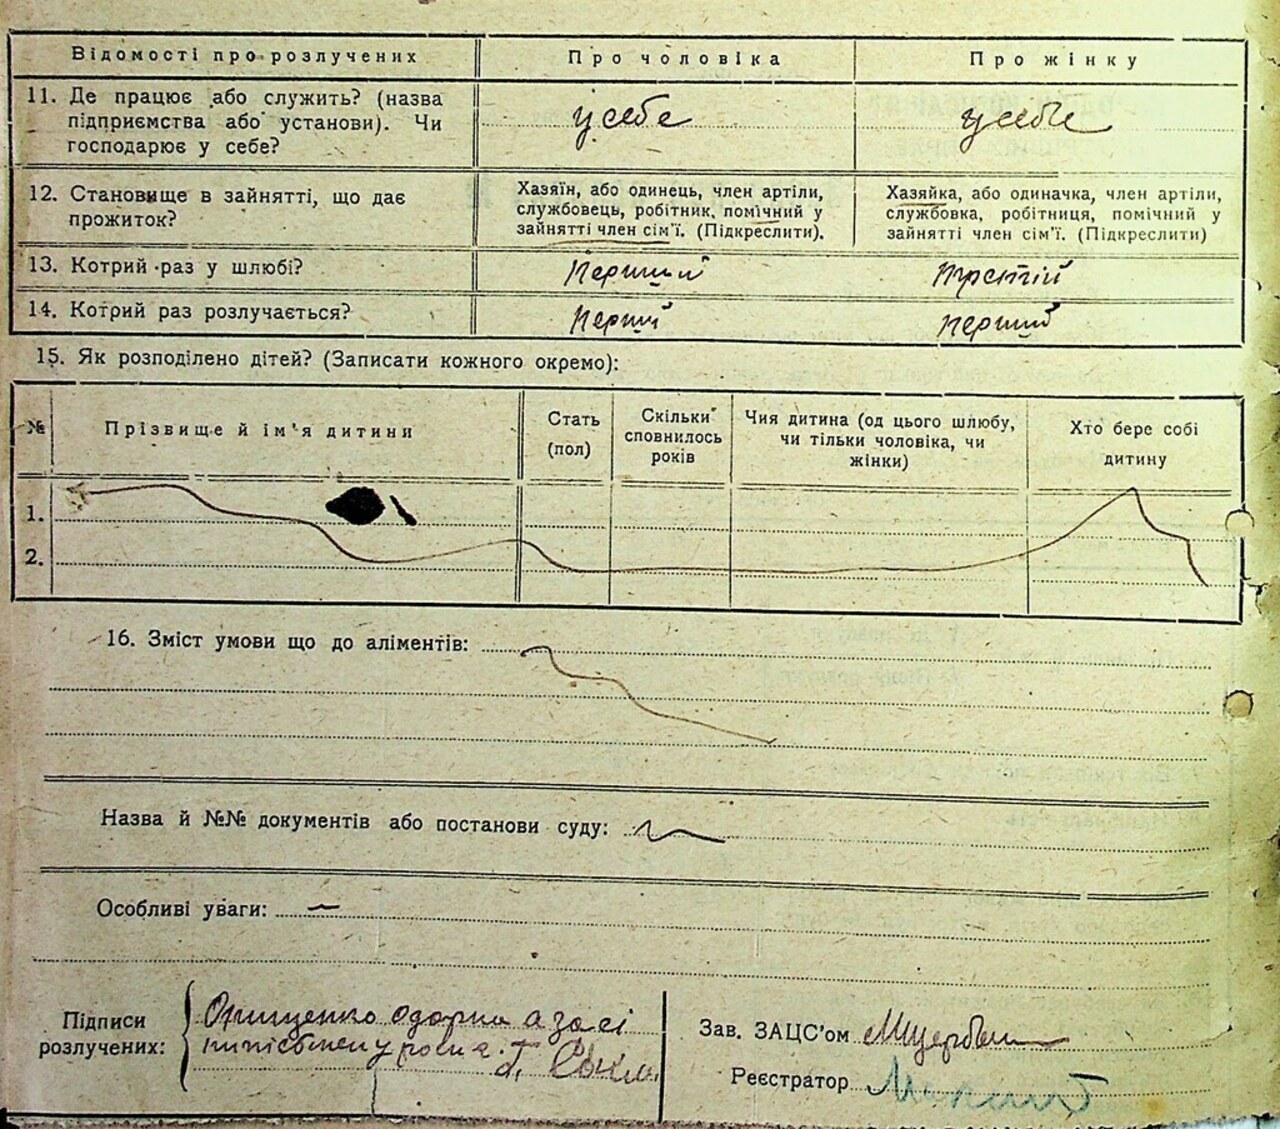 Відомості про розлучених Про чоловіка Про жінку
11. Де працює або служить? (назва підприємства або установи). Чи господарює у себе?
у себе
у себе
12. Становище в зайнятті, що дає прожиток?
Хазяїн, або одинець, член артіли, службовець, робітник, помічний у зайнятті член сім'ї. (Підкреслити).
Хазяйка, або одиначка, член артіли, службовка, робітниця, помічний у зайнятті член сім'ї. (Підкреслити)
13. Котрий раз у шлюбі? перший третій
14. Котрий раз розлучається? перший перший
15. Як розподілено дітей? (Записати кожного окремо):
№ Прізвище й ім'я дитини
Стать (пол)
Скільки сповнилось років
Чия дитина (од цього шлюбу, чи тільки чоловіка, чи жінки)
Хто бере собі дитину
1.
2.
16. Зміст умови що до аліментів:
Назва й №№ документів або постанови суду:
Особливі уваги:
Підписи розлучених:
Онищенко Одарка а за сі
Зав. ЗАЦС'ом
Реєстратор